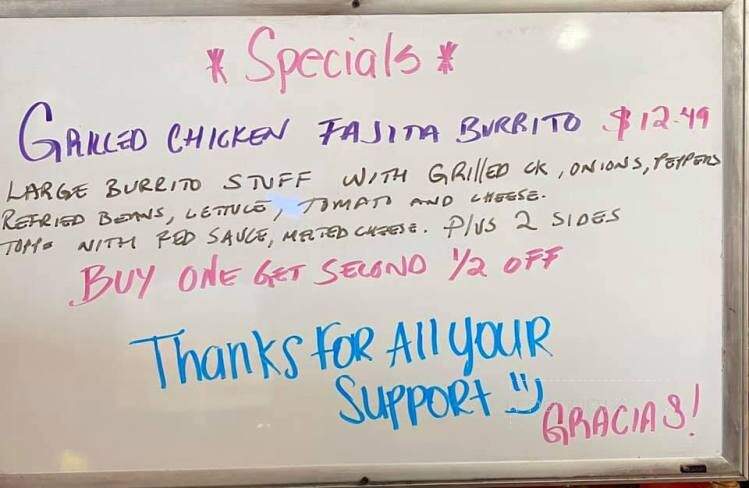 * Specials *
GRILLED CHICKEN FAJITA BURRITO $12.49
LARGE BURRITO STUFF WITH GRILLED CK, ONIONS, PEPPERS
REFRIED BEANS, LETTUCE, TOMATO AND CHEESE.
WITH RED SAUCE, MELTED CHEESE. PLUS 2 SIDES
BUY ONE GET SECOND 1/2 OFF
Thanks FOR All YOUR
SUPPORT
GRACIAS!